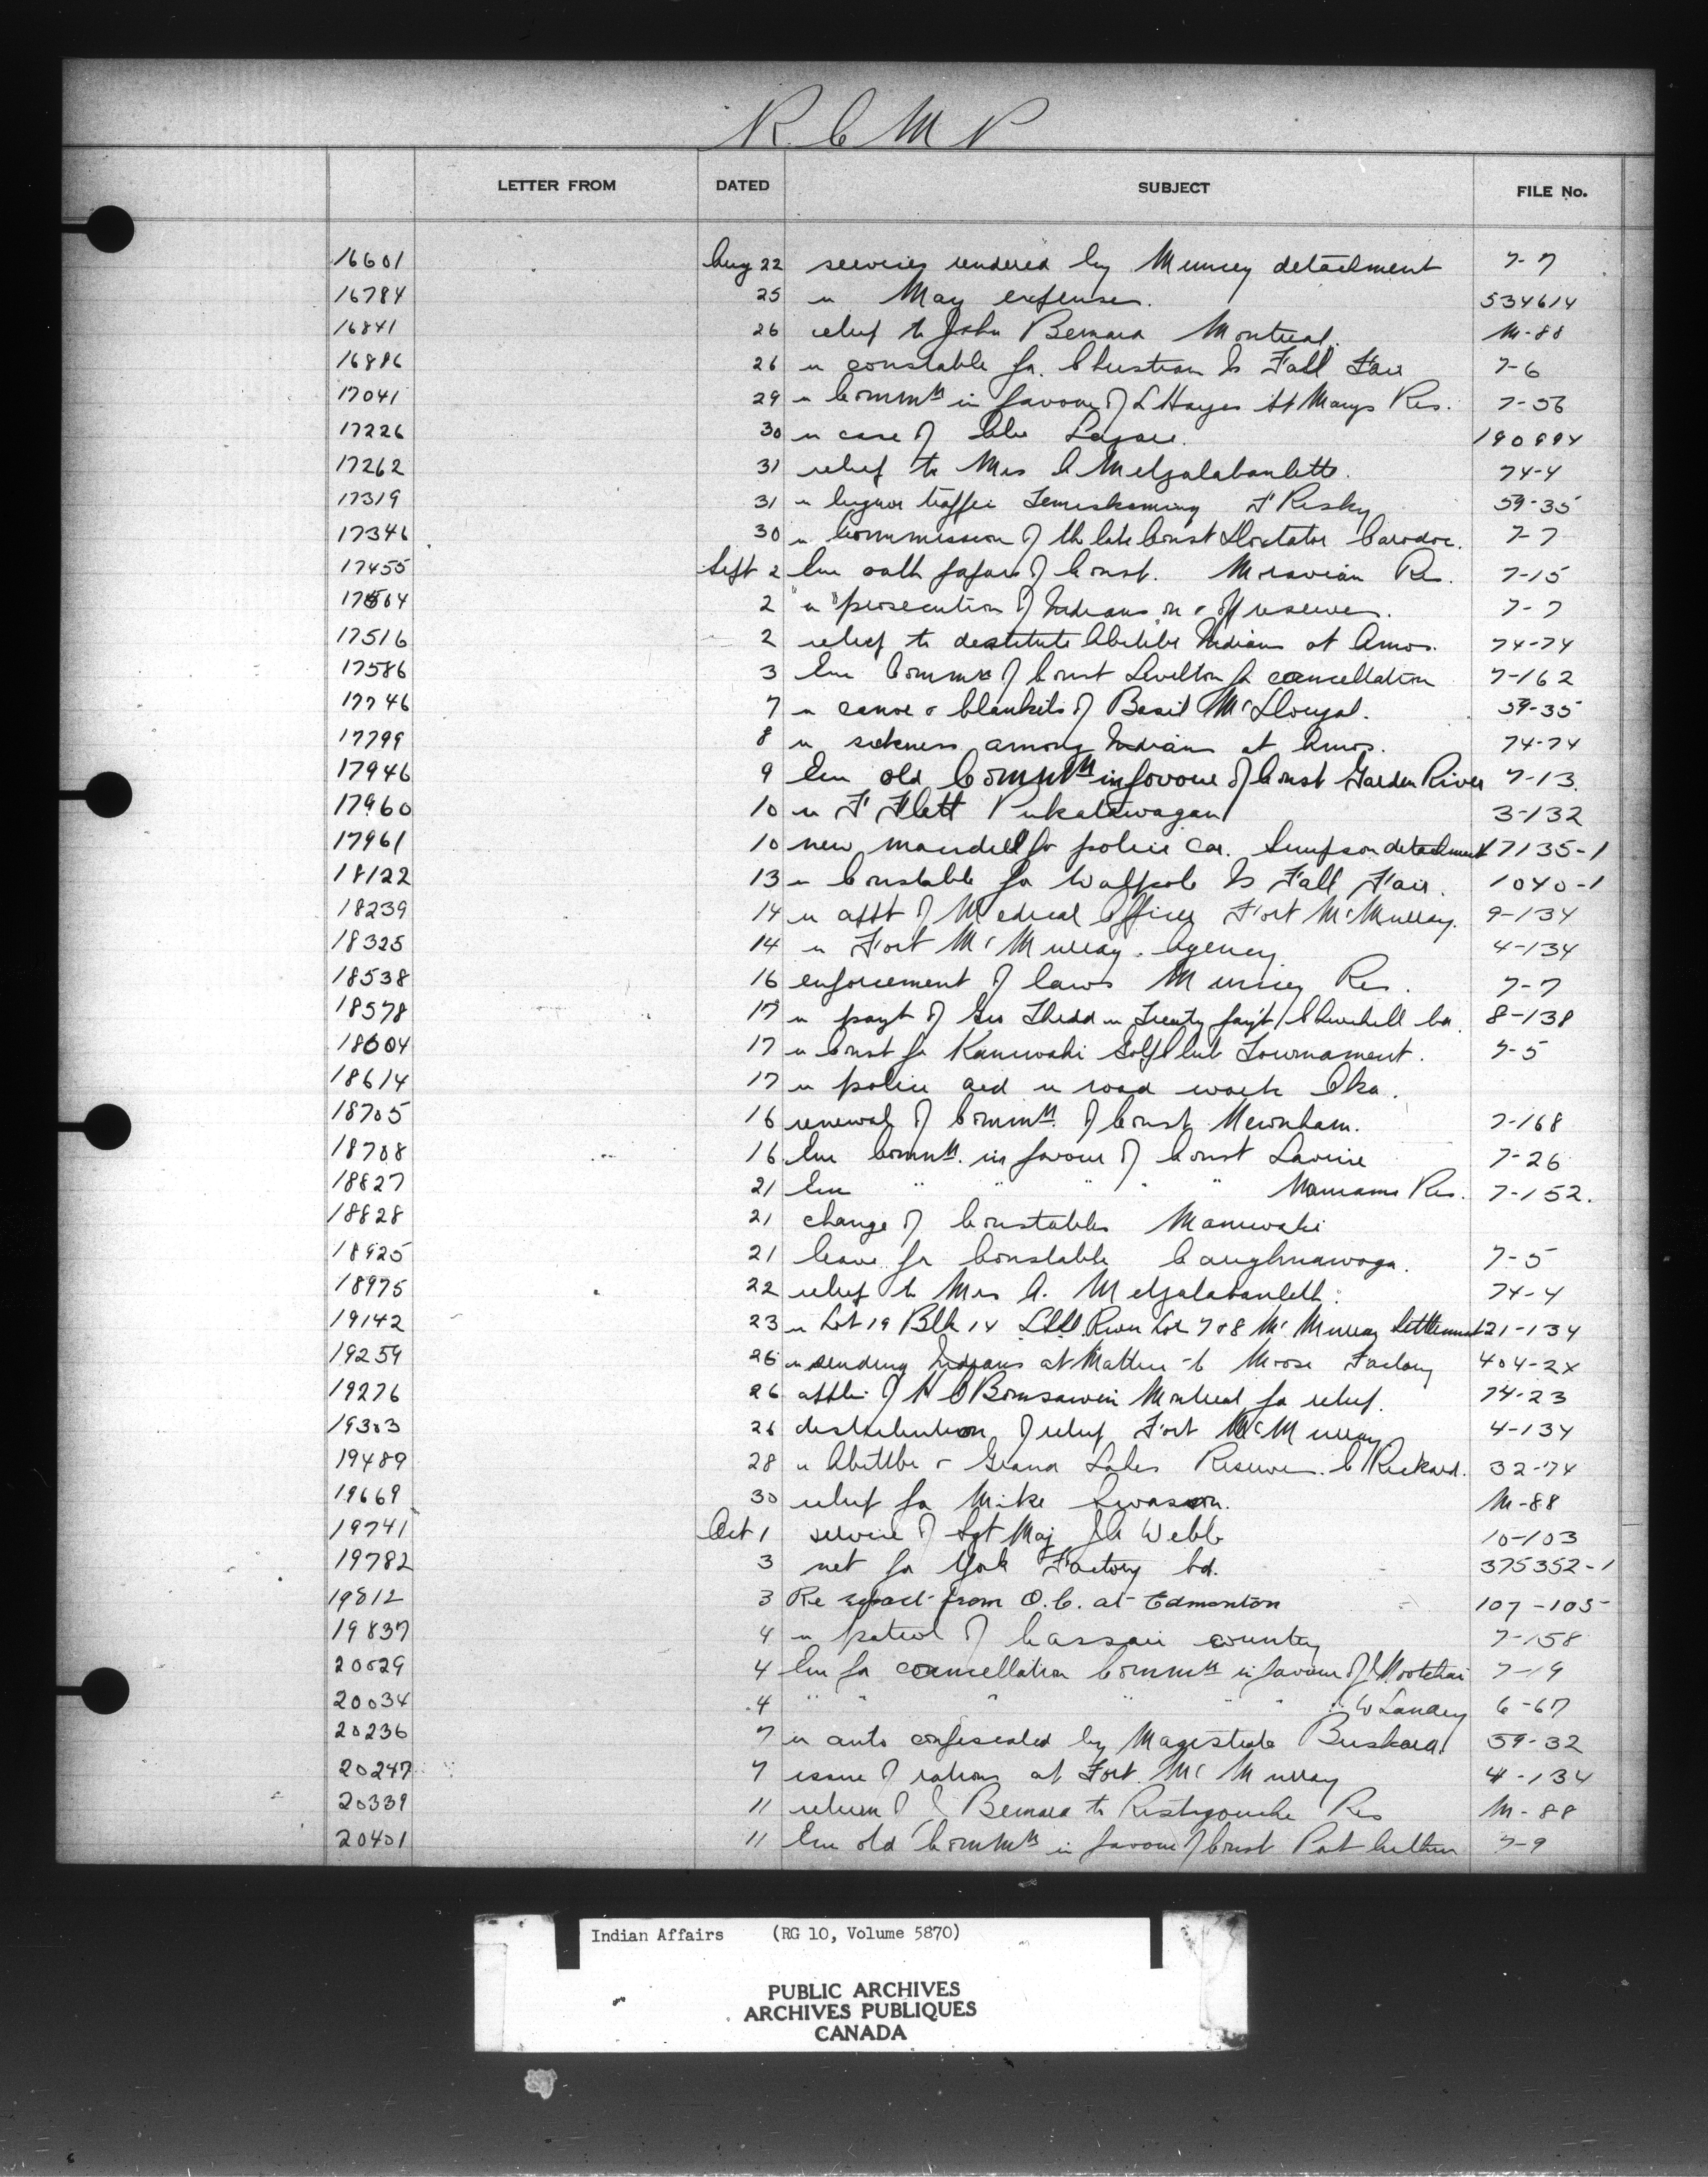 R. C. M. P
LETTER FROM DATED SUBJECT FILE No.
16601 Aug 22 services rendered by Muncey detachment 7-7
16784 25 re May expenses. 534614
16841 26 relief to John Bernard Montreal. M-88
16886 26 re constable for Christian Is Fall Fair 7-6
17041 29 re Commtt in favour of L Hayes St Marys Res. 7-56
17226 30 re case of Lazare. 190894
17262 31 relief to Mrs A Metzalabanlette. 74-4
17319 31 re liquor traffic Temiskaming F Risky 59-35
17346 30 re Commission of the late Const Doxtator Caradoc. 7-7
17455 Sept 2 Enc oath papers of Const. Moravian Res. 7-15
17504 2 re prosecution of Indians on & off reserves. 7-7
17516 2 relief to destitute Abitibi Indians at Amos. 74-74
17586 3 Enc Comm of Const Levelton for cancellation 7-162
17746 7 re canoe & blankets of Basil McDougal. 59-35
17799 8 re sickness among Indians at Amos. 74-74
17946 9 Enc old Commtt in favour of Const Garden River 7-13.
17960 10 re F Flett Pukatawagan 3-132
17961 10 new for police car. Simpson detachment 17135-1
18122 13 re Constable for Walpole Is Fall Fair. 1040-1
18239 14 re appt of Medical Officer Fort McMurray. 9-134
18325 14 re Fort McMurray. Agency 4-134
18538 16 enforcement of laws Muncey Res. 7-7
18578 17 re payt of Geo Thedd re Treaty payt Churchill bd. 8-138
18604 17 re Const for Kanawaki Golf Club Tournament. 7-5
18614 17 re police aid re road work Oka.
18705 16 renewal of Commtt. of Const Mewnham. 7-168
18708 16 Enc Commtt. in favour of Const Lavine 7-26
18827 21 Enc " " " " " Res. 7-152.
18828 21 change of Constables Maniwaki
18925 21 leave for Constable Caughnawaga. 7-5
18975 22 relief to Mrs A. Metzalabanlett. 74-4
19142 23 re Lot 19 Blk 14 River Lot 7&8 McMurray Settlement 121-134
19259 26 re sending Indians at Mattice to Moose Factory 404-2X
19276 26 appln of H O Bomsawin Montreal for relief. 74-23
19303 26 distribution of relief Fort McMurray 4-134
19489 28 re Abitibi & Grand Lakes Reserves. C Rickard. 32-74
19669 30 relief for Mike Swasson. M-88
19741 Oct 1 service of Sgt Maj J A Webb 10-103
19782 3 net for York Factory bd. 375352-1
19812 3 Re report from O.C. at Edmonton 107-105
19837 4 re patrol of Cassair country 7-158
20029 4 Enc for cancellation Commtt in favour of J Hootchai 7-19
20034 4 " " " " " " " W Landry 6-67
20236 7 re auto confiscated by Magistrate Buskard. 59-32
20247 7 issue of rations at Fort. McMurray 4-134
20339 11 return of J Bernard to Restigouche Res M-88
20401 11 Enc old Commtt in favour of Const Pat 7-9
Indian Affairs (RG 10, Volume 5870)
PUBLIC ARCHIVES
ARCHIVES PUBLIQUES
CANADA